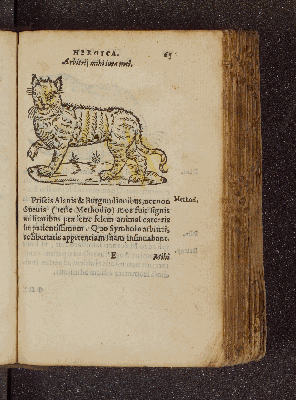 HEROICA. 65
Arbitrij mihi iura mei.
Priscis Alanis & Burgundionibus, necnon Method.
Sueuis (teste Methodio) mos fuit signis
militaribus præferre felem animal carceris
impatientissimum. Quo Symbolo arbitrij,
ac libertatis appetentiam suam insinuabant.
E Mihi